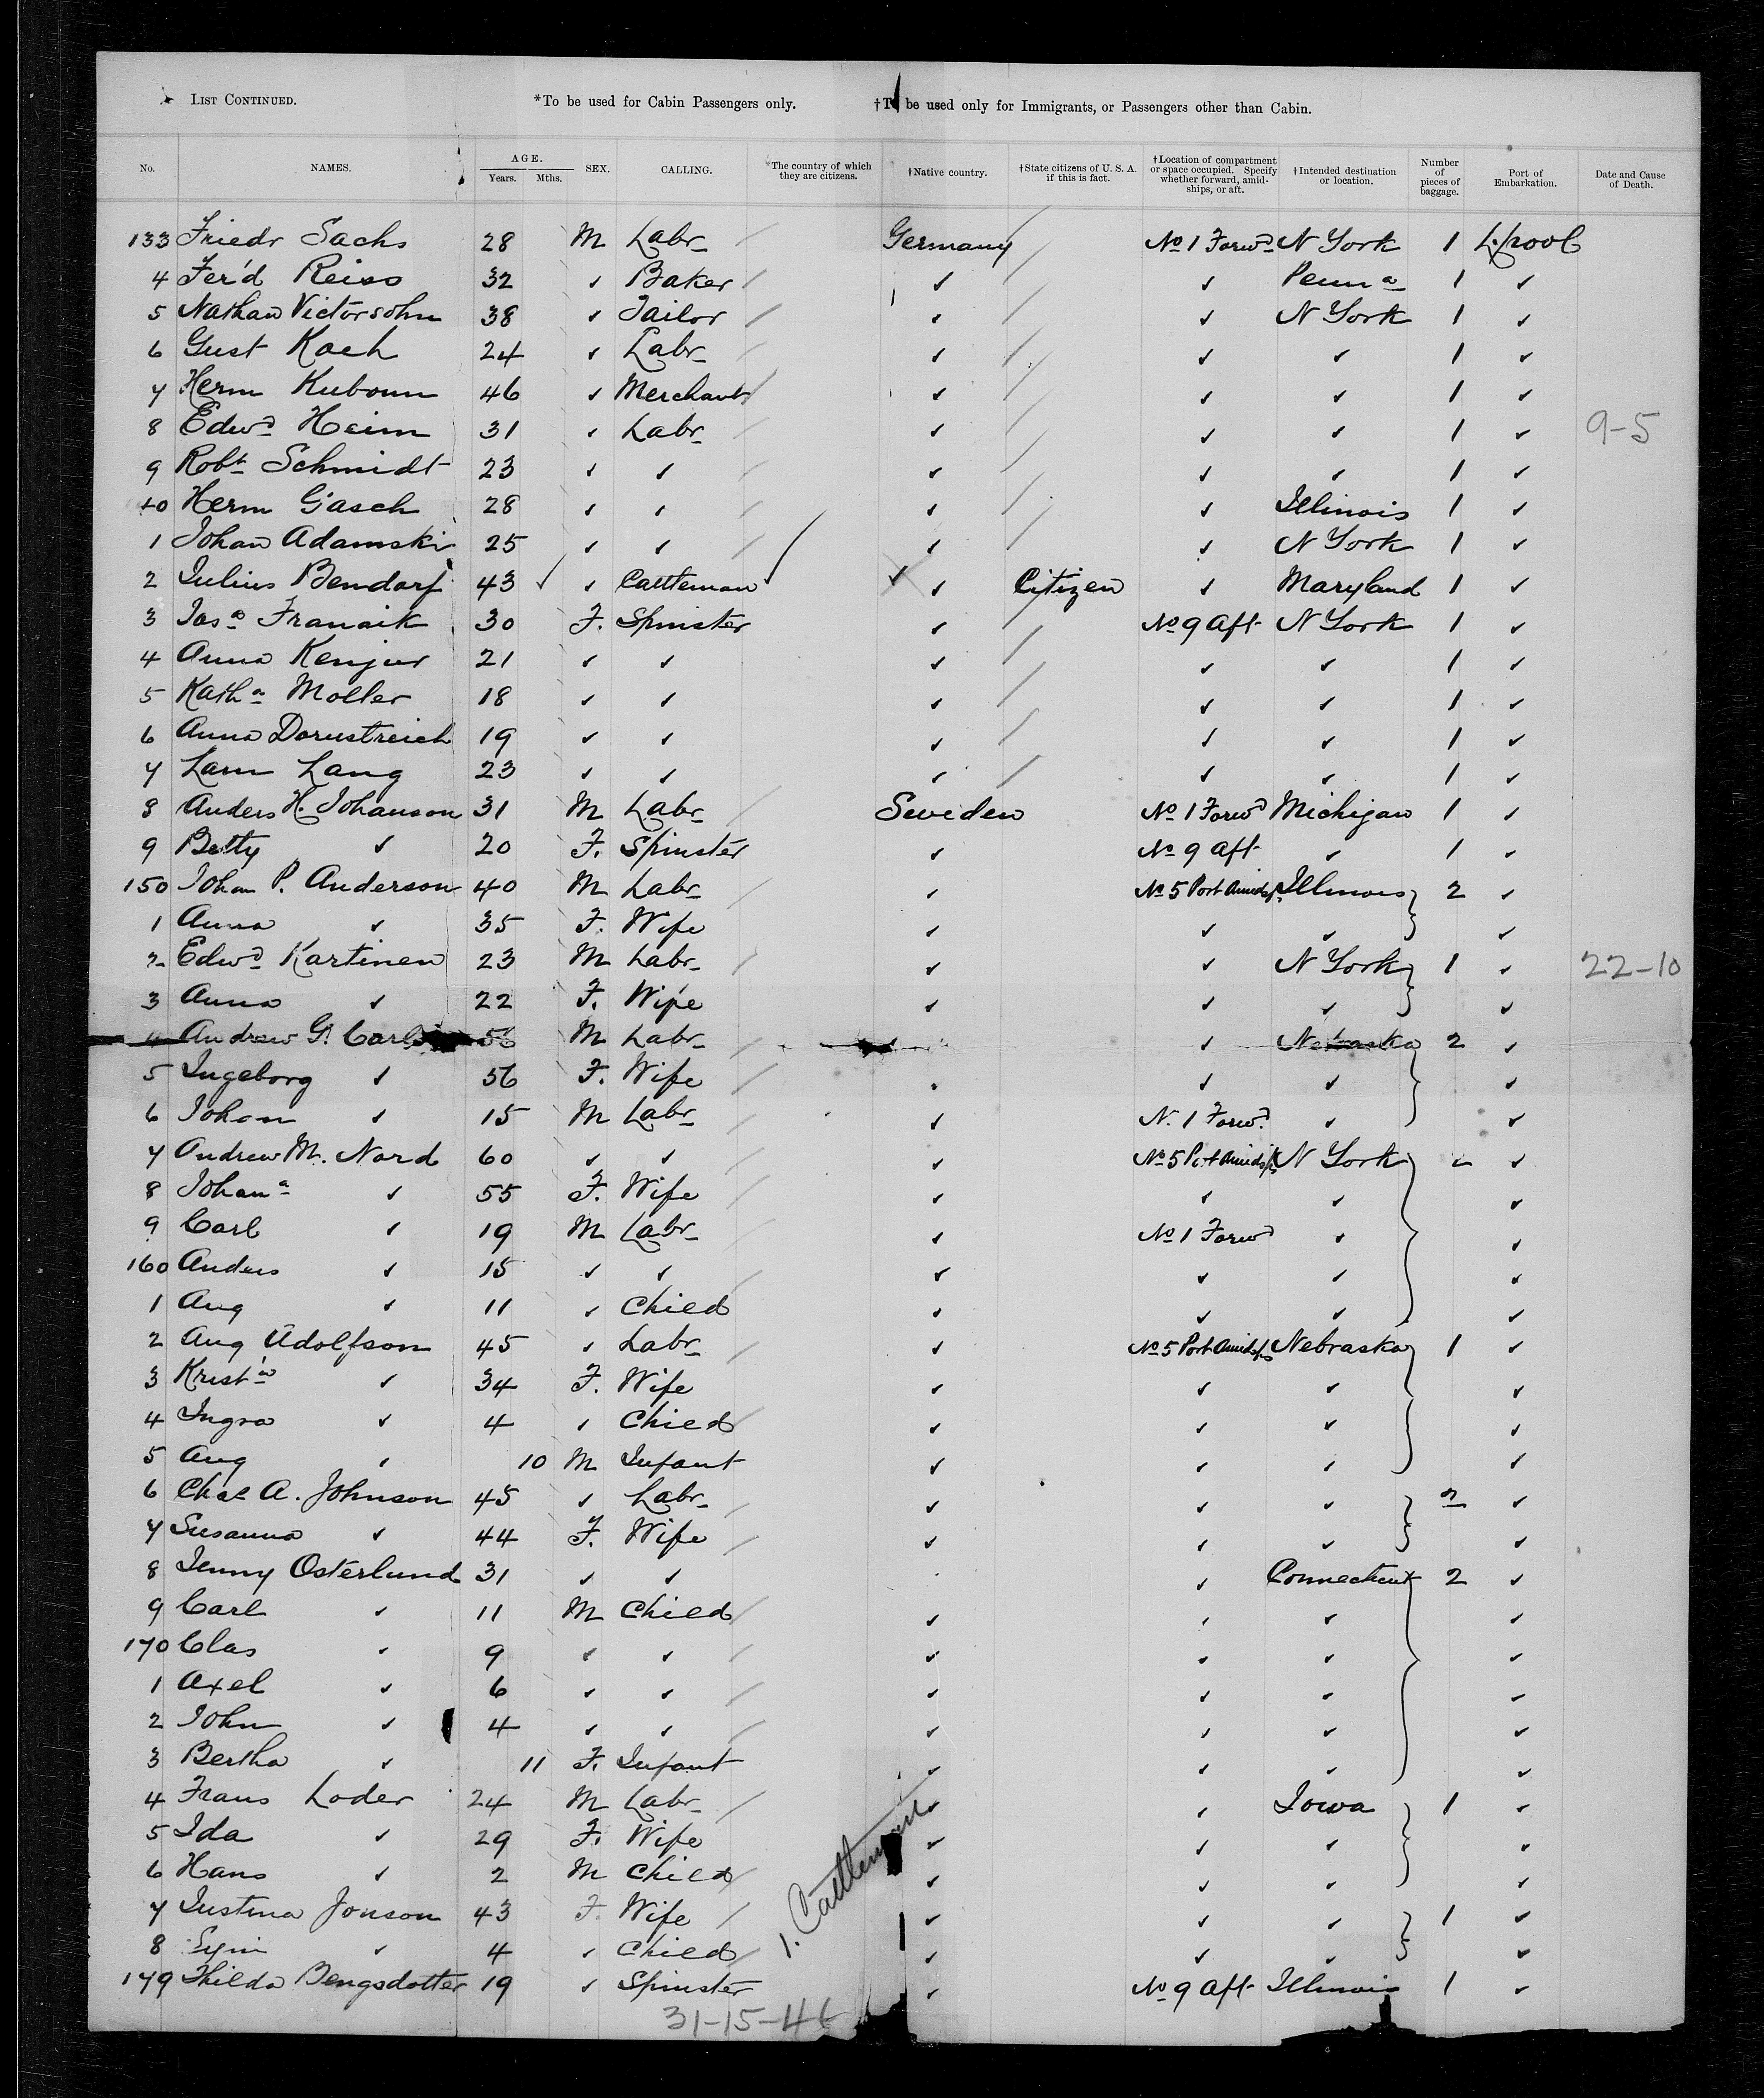 LIST CONTINUED. *To be used for Cabin Passengers only. †To be used only for Immigrants, or Passengers other than Cabin.
No. NAMES. AGE. Years. Mths. SEX. CALLING. *The country of which they are citizens. †Native country. †State citizens of U. S. A. if this is fact. †Location of compartment or space occupied. Specify whether forward, amidships, or aft. †Intended destination or location. Number of pieces of baggage. Port of Embarkation. Date and Cause of Death.
133 Friedr Sachs 28 M Labr Germany No 1 Forwd N York 1 L'pool
4 Ferd Reiss 32 ✓ Baker ✓ ✓ Penna 1 ✓
5 Nathan Victorsohn 38 ✓ Tailor ✓ ✓ N York 1 ✓
6 Gust Koch 24 ✓ Labr ✓ ✓ ✓ 1 ✓
7 Herm Kuboun 46 ✓ Merchant ✓ ✓ ✓ 1 ✓
8 Edwd Heim 31 ✓ Labr ✓ ✓ ✓ 1 ✓ 9-5
9 Robt Schmidt 23 ✓ ✓ ✓ ✓ ✓ 1 ✓
40 Herm Gasch 28 ✓ ✓ ✓ ✓ Illinois 1 ✓
1 Johan Adamski 25 ✓ ✓ ✓ ✓ N York 1 ✓
2 Julius Bendorf 43 ✓ ✓ Cattleman ✓ ✓ ✓ Citizen ✓ Maryland 1 ✓
3 Josa Franaik 30 F. Spinster ✓ No 9 Aft N York 1 ✓
4 Anna Kenjur 21 ✓ ✓ ✓ ✓ ✓ 1 ✓
5 Katha Moller 18 ✓ ✓ ✓ ✓ ✓ 1 ✓
6 Anna Dorustreich 19 ✓ ✓ ✓ ✓ ✓ 1 ✓
7 Lang 23 ✓ ✓ ✓ ✓ ✓ 1 ✓
8 Anders H. Johanson 31 M Labr Sweden No 1 Forwd Michigan 1 ✓
9 Betty ✓ 20 F. Spinster ✓ No 9 Aft ✓ 1 ✓
150 Johan P. Anderson 40 M Labr ✓ No 5 Port Amids/ps Illinois 2 ✓
1 Anna ✓ 35 F. Wife ✓ ✓ ✓ ✓
2 Edwd Kartinen 23 M Labr ✓ ✓ N York 1 ✓ 22-10
3 Anna ✓ 22 F. Wife ✓ ✓ ✓ ✓
4 Andrew G. 56 M Labr ✓ Nebraska 2 ✓
5 Ingeborg ✓ 56 F. Wife ✓ ✓ ✓ ✓
6 Johan ✓ 15 M Labr ✓ N. 1 Forwd ✓ ✓
7 Andrew M. Nord 60 ✓ ✓ ✓ No 5 Port Amids/ps N York ✓
8 Johana ✓ 55 F. Wife ✓ ✓ ✓ ✓
9 Carl ✓ 19 M Labr ✓ No 1 Forwd ✓ ✓
160 Anders ✓ 15 ✓ ✓ ✓ ✓ ✓ ✓
1 Aug ✓ 11 ✓ Child ✓ ✓ ✓ ✓
2 Aug Adolfson 45 ✓ Labr ✓ No 5 Port Amids/ps Nebraska 1 ✓
3 Krista ✓ 34 F. Wife ✓ ✓ ✓ ✓
4 Ingra ✓ 4 ✓ Child ✓ ✓ ✓ ✓
5 Aug ✓ 10 M Infant ✓ ✓ ✓ ✓
6 Chas A. Johnson 45 ✓ Labr ✓ ✓ ✓ 2 ✓
7 Susanna ✓ 44 F. Wife ✓ ✓ ✓ ✓
8 Jenny Osterlund 31 ✓ ✓ ✓ Connecticut 2 ✓
9 Carl ✓ 11 M Child ✓ ✓ ✓ ✓
170 Clas ✓ 9 ✓ ✓ ✓ ✓ ✓ ✓
1 Axel ✓ 6 ✓ ✓ ✓ ✓ ✓ ✓
2 John ✓ 4 ✓ ✓ ✓ ✓ ✓ ✓
3 Bertha ✓ 11 F. Infant ✓ ✓ ✓ ✓
4 Frans Loder 24 M Labr ✓ ✓ Iowa 1 ✓
5 Ida ✓ 29 F. Wife ✓ ✓ ✓ ✓
6 Hans ✓ 2 M Child ✓ ✓ ✓ ✓
7 Justina Jonson 43 F. Wife ✓ ✓ ✓ 1 ✓
8 ✓ 4 ✓ Child ✓ ✓ ✓ ✓
179 Thilda Bengsdotter 19 ✓ Spinster ✓ No 9 Aft Illinois 1 ✓
1. Cattleman
31-15-46